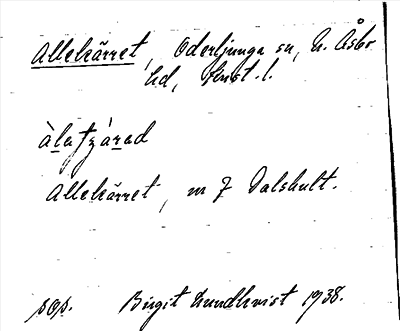 Allekärret, Oderljunga sn, N. Åsbo
hd, Krist. l.
àlatɟárad
Allekärret, m 7 Dalshult.
sOs. Birgit Lundkvist 1938.